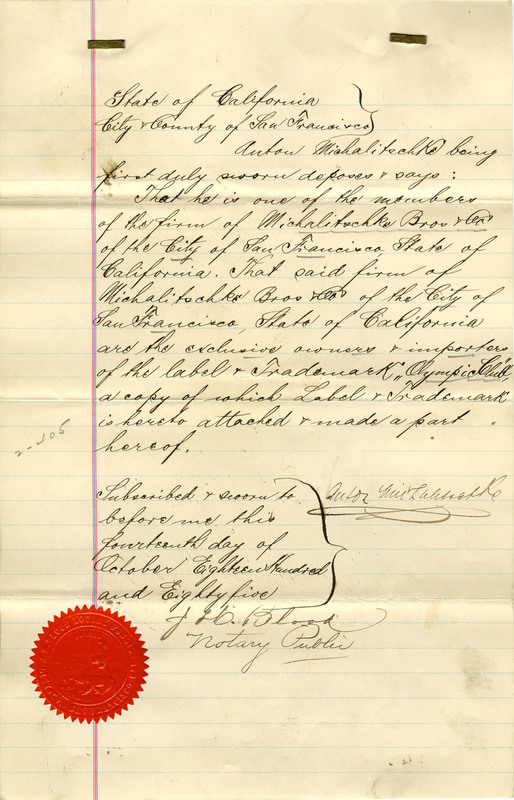 State of California
City & County of San Francisco
Anton Michalitschke being
first duly sworn deposes & says:
That he is one of the members
of the firm of Michalitschke Bros & Co
of the City of San Francisco, State of
California. That said firm of
Michalitschke Bros & Co of the City of
San Francisco, State of California
are the exclusive owners & importers
of the label & Trademark "Olympic Club"
a copy of which Label & Trademark
is hereto attached & made a part
hereof.
2-405
Subscribed & sworn to
before me this
fourteenth day of
October Eighteen Hundred
and Eighty five
Anton Michalitschke
J H. Blood
Notary Public